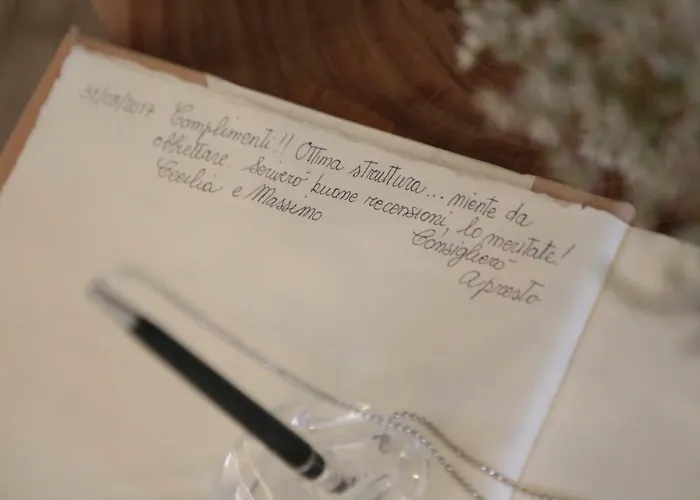 31/03/2017 Complimenti!! Ottima struttura... niente da
obbiettare. Scriverò buone recensioni, lo meritate!
Cecilia e Massimo Consiglierò
A presto